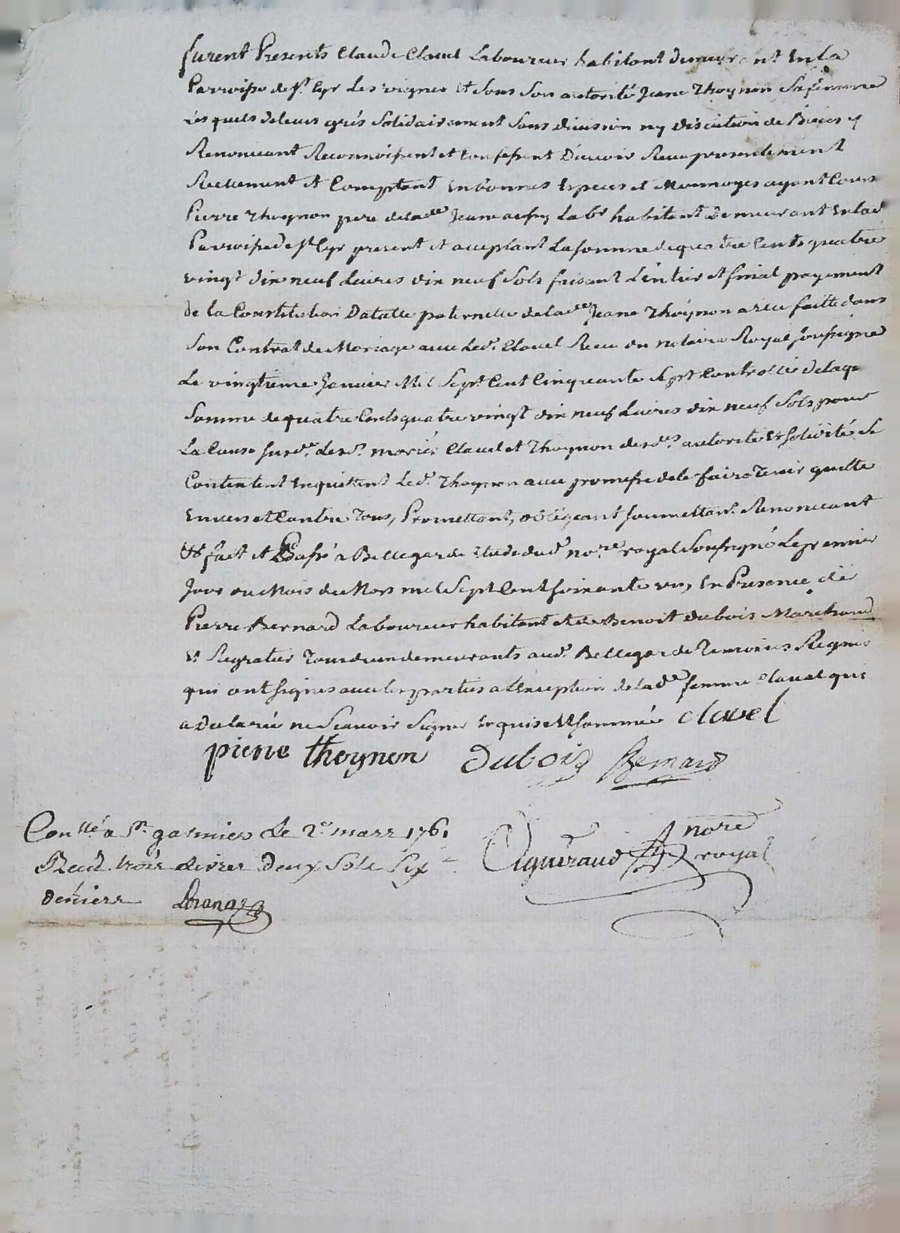 furent Presents Claude Clavel Laboureur habitant demeurant En La
Parroisse de St. Cyr Les vignes Et sous son autorité Jeane Thoynon Sa femme
Lesquels deleurs grés Solidairement Sans division ny discution de Biens y
Renoncant Reconnoissent et confessent D'avoir Receu presentement
Reelement Et Comptant En bonnes Especes et Monnoyes ayant Cours
Pierre Thoynon pere delade Jeane aussy Labr habitant Demeurant En lade
Parroisse de St Cyr present et aceptant La somme de quatre Cents quatre
vingt dix neuf Livres dix neuf Sols faisant L'entier et final payement
de la Constitution Datalle paternelle de lade Jeane Thoynon a elle faitte dans
Son Contrat de Mariage avec Led. Clavel Receu du notaire Royal soussigné
Le vingtieme Janvier Mil Sept Cent Cinquante Sept Controllé delaqe
Somme de quatre Cents quatre vingt dix neuf Livres dix neuf Sols pour
La Cause susde. Lesd. mariés Clavel et Thoynon desdes. autorité Et solidité Se
Contentent En quittent Led. Thoynon avec promesse de le faire Tenir quitte
Envers et Contre Tous, Promettant, obligeant soumettant Renoncant
Et fait Et Passé a Bellegarde Etude dud. nore. royal Soussigné Le premier
Jour du Mois de Mars mil Sept Cent soixante un, En Presence de
Pierre Bernard Laboureur habitant et de Benoit Dubois Marchand
Et Regratier demeurants aud. Bellegarde Temoins Requis
qui ont signés avec les parties a L'exception de lade. femme Clavel qui
a Declarée ne Scavoir Signer Enquise Et sommée clavel
pierre thoynon Dubois Bernard
Conllé a St. galmier Le 2e mars 1761
Recû trois Livres Deux Sols Six
deniers
nore
royal